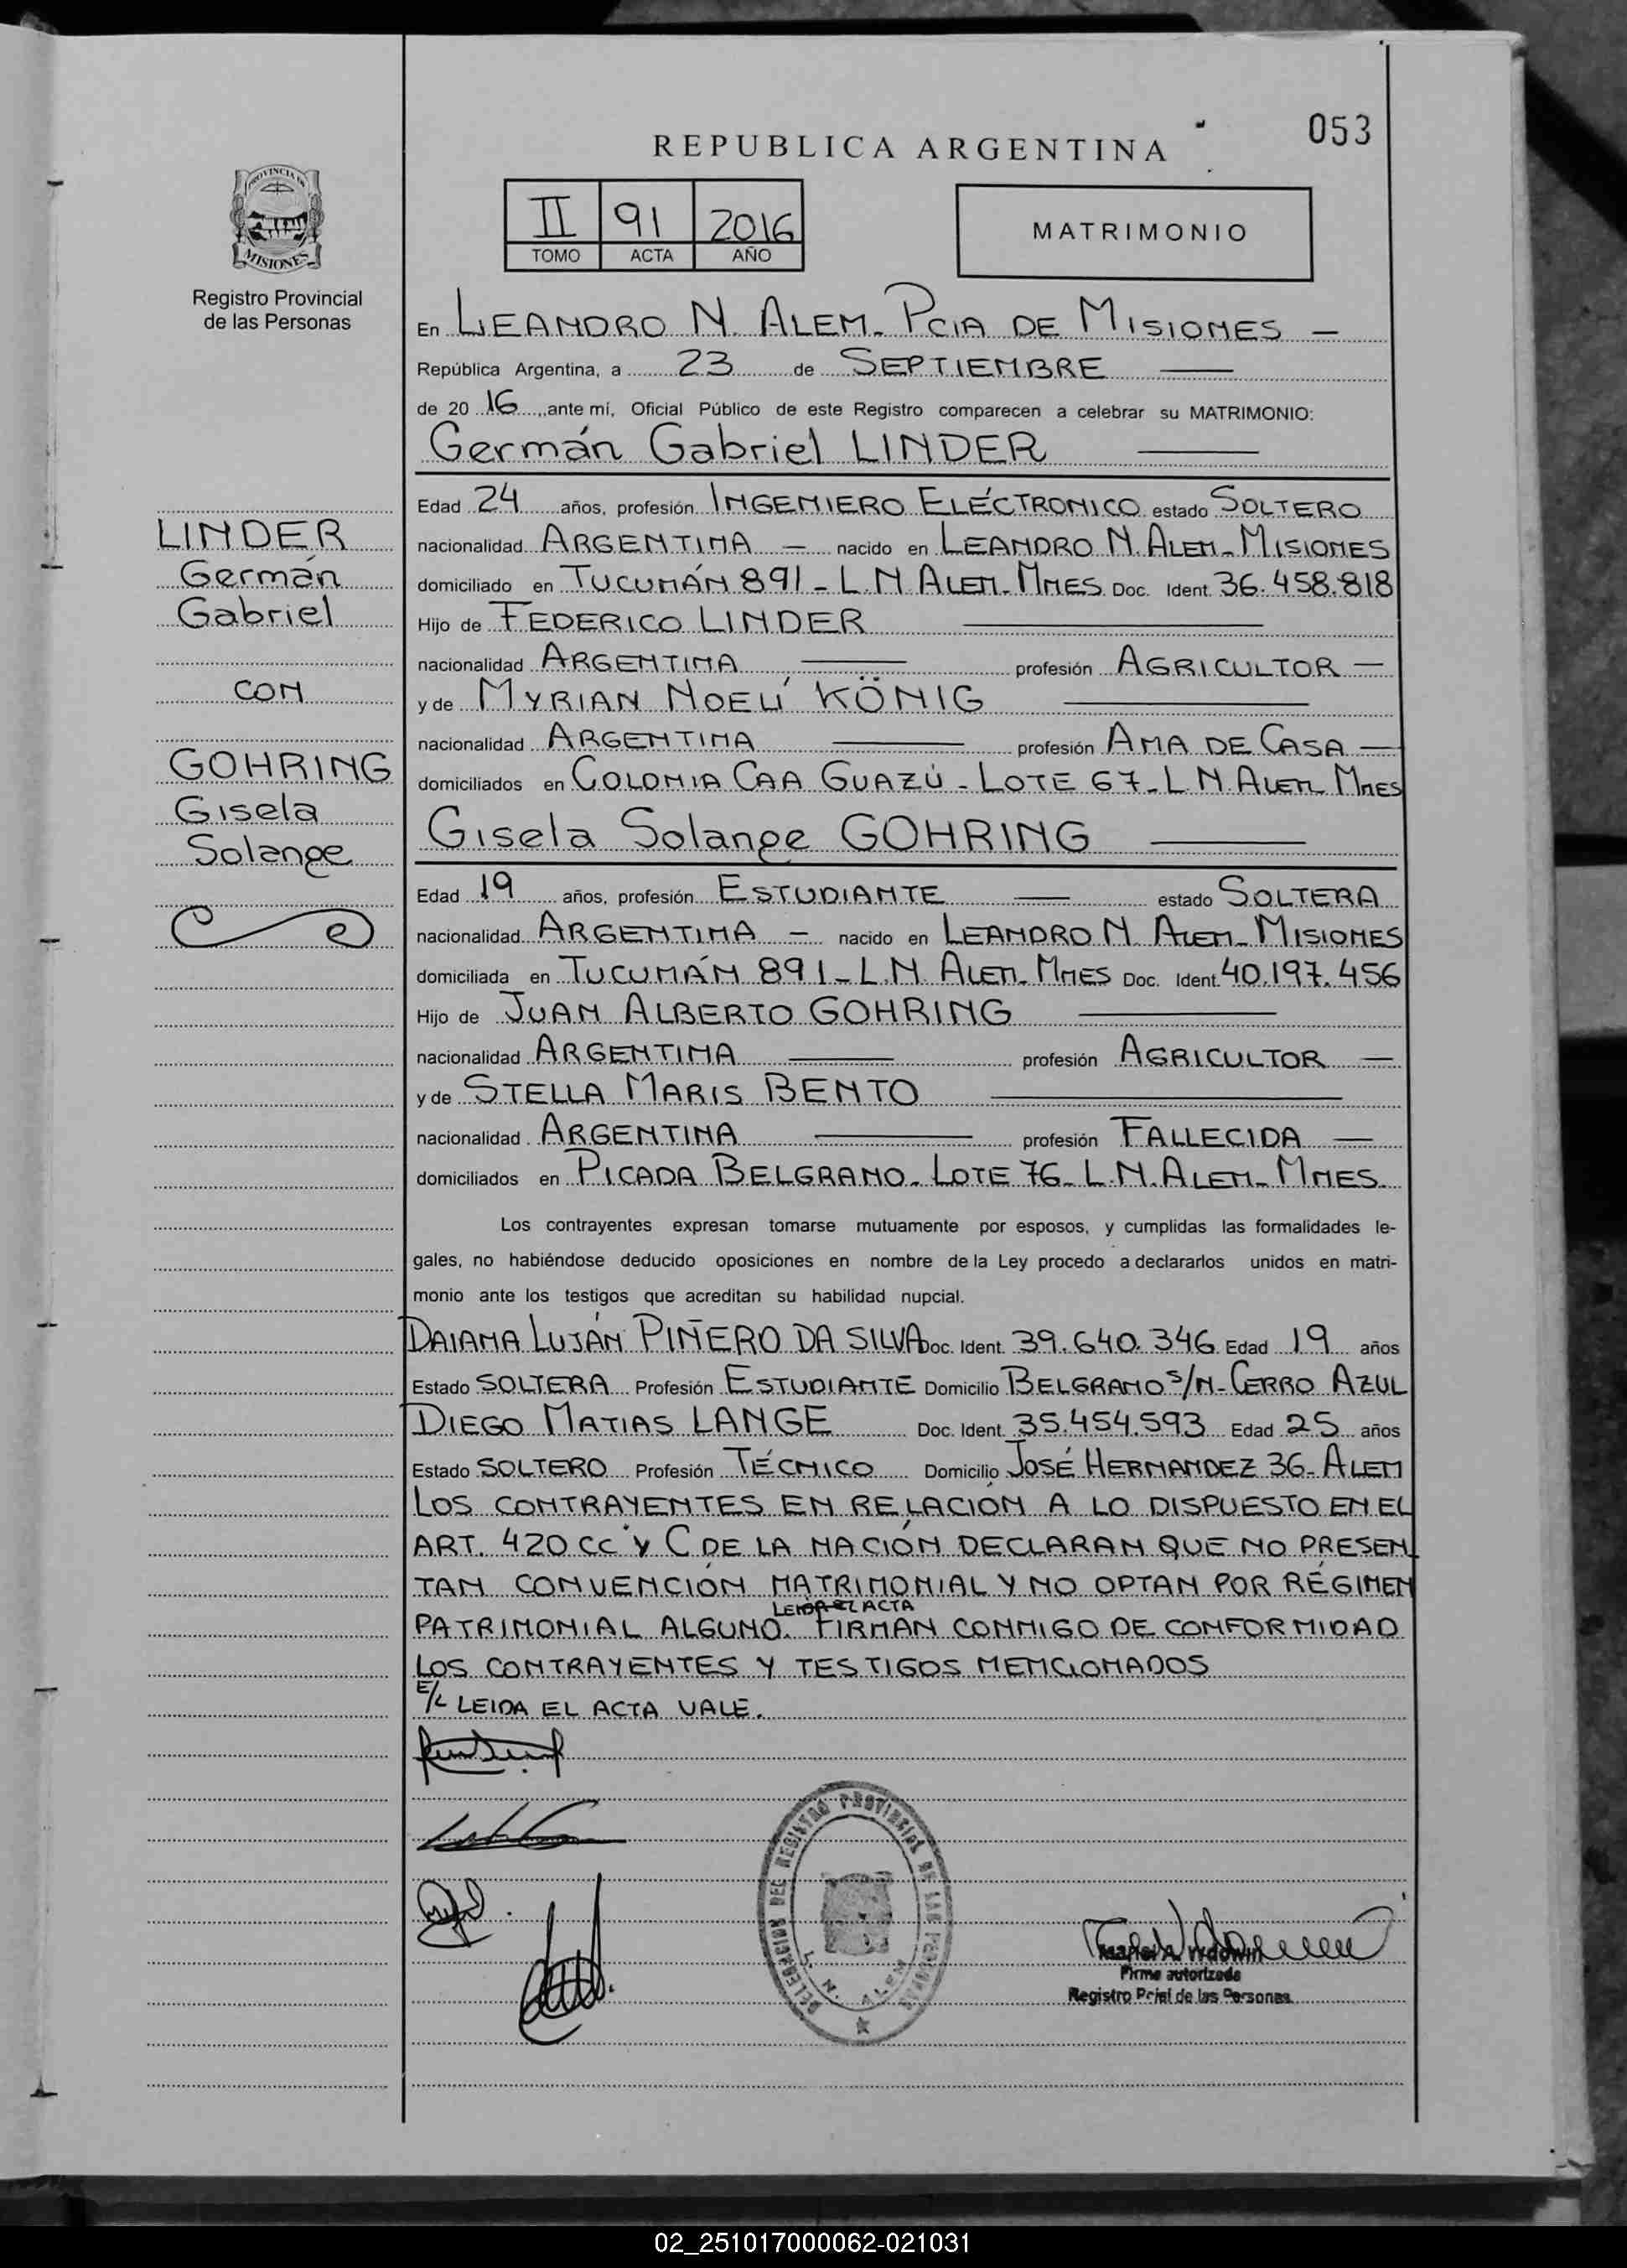 053
REPUBLICA ARGENTINA
PROVINCIA DE
MISIONES
Registro Provincial
de las Personas
II 91 2016
TOMO ACTA AÑO
MATRIMONIO
En LEANDRO N. ALEM. PCIA DE MISIONES
República Argentina, a 23 de SEPTIEMBRE
de 20 16, ante mí, Oficial Público de este Registro comparecen a celebrar su MATRIMONIO:
Germán Gabriel LINDER
Edad 24 años, profesión INGENIERO ELÉCTRONICO estado SOLTERO
nacionalidad ARGENTINA - nacido en LEANDRO N. ALEM - MISIONES
domiciliado en TUCUMÁN 891 - L.N ALEM - MNES Doc. Ident. 36.458.818
Hijo de FEDERICO LINDER
nacionalidad ARGENTINA profesión AGRICULTOR
y de MYRIAN NOELÍ KÖNIG
nacionalidad ARGENTINA profesión AMA DE CASA
domiciliados en COLONIA CAA GUAZÚ - LOTE 67 - L.N. ALEM - MNES
LINDER
Germán
Gabriel
CON
GOHRING
Gisela
Solange
Gisela Solange GOHRING
Edad 19 años, profesión ESTUDIANTE estado SOLTERA
nacionalidad ARGENTINA - nacido en LEANDRO N. ALEM - MISIONES
domiciliada en TUCUMÁN 891 - L.N. ALEM - MNES Doc. Ident. 40.197.456
Hijo de JUAN ALBERTO GOHRING
nacionalidad ARGENTINA profesión AGRICULTOR
y de STELLA MARIS BENTO
nacionalidad ARGENTINA profesión FALLECIDA
domiciliados en PICADA BELGRANO - LOTE 76 - L.N. ALEM - MNES.
Los contrayentes expresan tomarse mutuamente por esposos, y cumplidas las formalidades le-
gales, no habiéndose deducido oposiciones en nombre de la Ley procedo a declararlos unidos en matri-
monio ante los testigos que acreditan su habilidad nupcial.
DAIANA LUJÁN PIÑERO DA SILVA Doc. Ident. 39.640.346 Edad 19 años
Estado SOLTERA Profesión ESTUDIANTE Domicilio BELGRANO S/N - CERRO AZUL
DIEGO MATIAS LANGE Doc. Ident. 35.454.593 Edad 25 años
Estado SOLTERO Profesión TÉCNICO Domicilio JOSÉ HERNANDEZ 36 - ALEM
LOS CONTRAYENTES EN RELACIÓN A LO DISPUESTO EN EL
ART. 420 CC Y C DE LA NACIÓN DECLARAN QUE NO PRESEN
TAN CONVENCIÓN MATRIMONIAL Y NO OPTAN POR RÉGIMEN
LEIDA EL ACTA
PATRIMONIAL ALGUNO. FIRMAN CONMIGO DE CONFORMIDAD
LOS CONTRAYENTES Y TESTIGOS MENCIONADOS
E/L LEIDA EL ACTA VALE.
DELEGACION DEL REGISTRO PROVINCIAL DE LAS PERSONAS
L. N. ALEM
Firma autorizada
Registro Pcial de las Personas
02_251017000062-021031